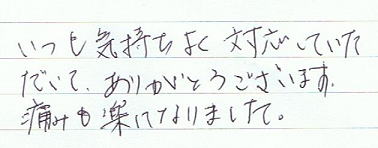 いつも気持ちよく対応していた
だいて、ありがとうございます。
痛みも楽になりました。